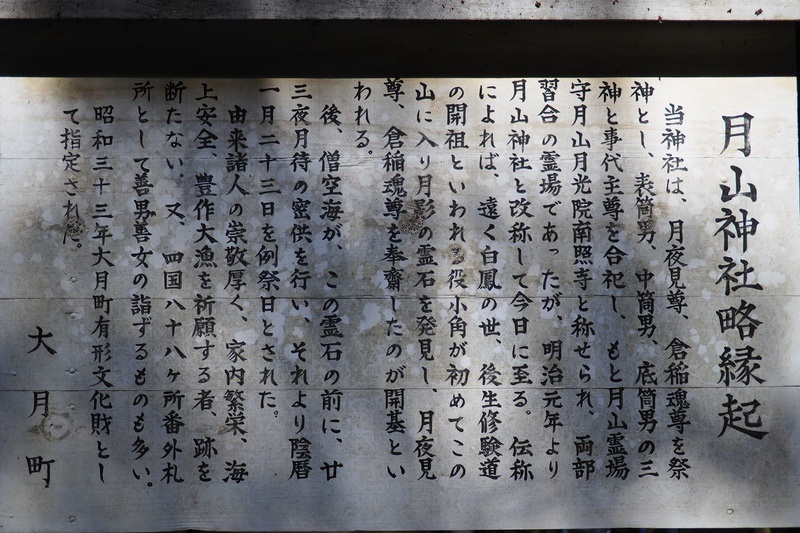 月山神社略縁起
当神社は、月夜見尊、倉稲魂尊を祭
神とし、表筒男、中筒男、底筒男の三
神と事代主尊を合祀し、もと月山霊場
守月山月光院南照寺と称せられ、両部
習合の霊場であったが、明治元年より
月山神社と改称して今日に至る。伝称
によれば、遠く白鳳の世、後生修験道
の開祖といわれる役小角が初めてこの
山に入り月影の霊石を発見し、月夜見
尊、倉稲魂尊を奉齋したのが開基とい
われる。
後、僧空海が、この霊石の前に、廿
三夜月待の密供を行い、それより陰暦
一月二十三日を例祭日とされた。
由来諸人の崇敬厚く、家内繁栄、海
上安全、豊作大漁を祈願する者、跡を
断たない。又、四国八十八ヶ所番外札
所として善男善女の詣ずるものも多い。
昭和三十三年大月町有形文化財とし
て指定された。
大月町